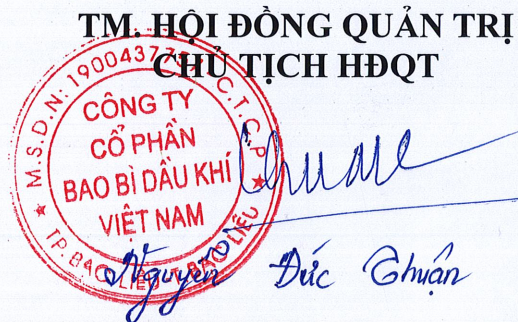 TM. HỘI ĐỒNG QUẢN TRỊ
CHỦ TỊCH HĐQT
M.S.D.N: 1900437757 C.T.C.P
CÔNG TY
CỔ PHẦN
BAO BÌ DẦU KHÍ
VIỆT NAM
TP. BẠC LIÊU T. BẠC LIÊU
Nguyễn Đức Thuận